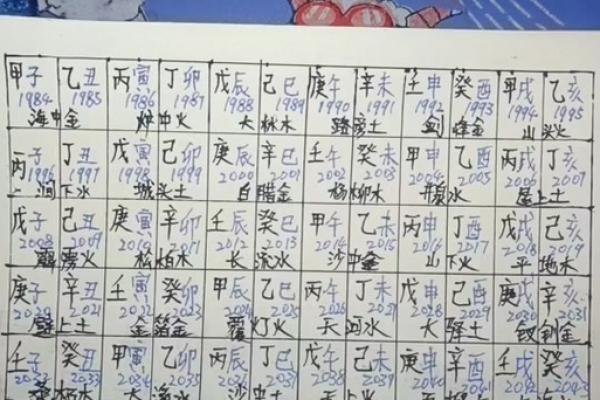 甲子 乙丑 丙寅 丁卯 戊辰 己巳 庚午 辛未 壬申 癸酉 甲戌 乙亥
1984 1985 1986 1987 1988 1989 1990 1991 1992 1993 1994 1995
海中金 炉中火 大林木 路旁土 剑锋金 山头火
丙子 丁丑 戊寅 己卯 庚辰 辛巳 壬午 癸未 甲申 乙酉 丙戌 丁亥
1996 1997 1998 1999 2000 2001 2002 2003 2004 2005 2006 2007
涧下水 城头土 白腊金 杨柳木 井泉水 屋上土
戊子 己丑 庚寅 辛卯 壬辰 癸巳 甲午 乙未 丙申 丁酉 戊戌 己亥
2008 2009 2010 2011 2012 2013 2014 2015 2016 2017 2018 2019
霹雳火 松柏木 长流水 沙中金 山下火 平地木
庚子 辛丑 壬寅 癸卯 甲辰 乙巳 丙午 丁未 戊申 己酉 庚戌 辛亥
2020 2021 2022 2023 2024 2025 2026 2027 2028 2029 2030 2031
壁上土 金箔金 覆灯火 天河水 大驿土 钗钏金
壬子 癸丑 甲寅 乙卯 丙辰 丁巳 戊午 己未 庚申 辛酉 壬戌 癸亥
2033 2034 2035 2036 2037 2038 2039 2041 2042